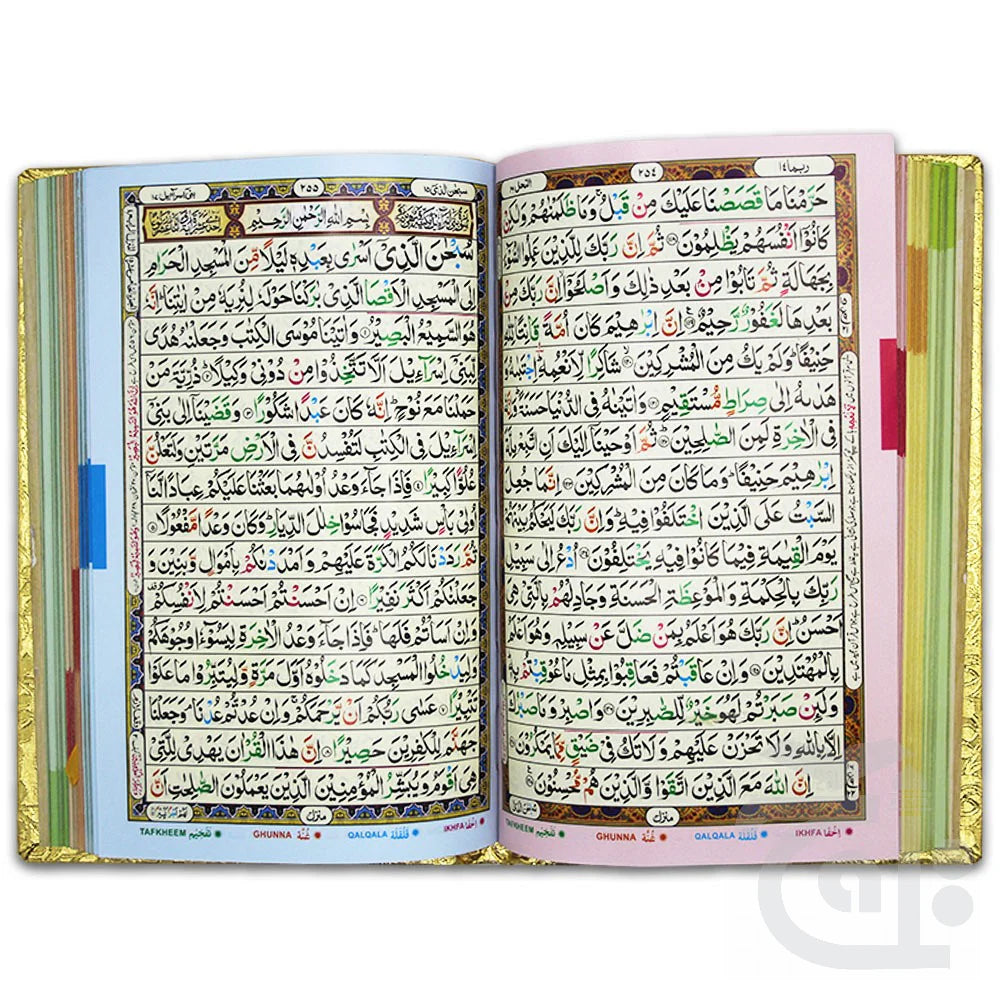 ربما ١٤
٢٥٤
النحل ١٦
حَرَّمْنَا مَا قَصَصْنَا عَلَيْكَ مِنْ قَبْلُ ۚ وَمَا ظَلَمْنٰهُمْ وَلٰكِنْ
كَانُوْۤا اَنْفُسَهُمْ يَظْلِمُوْنَ ثُمَّ اِنَّ رَبَّكَ لِلَّذِيْنَ عَمِلُوا السُّوْٓءَ
بِجَهَالَةٍ ثُمَّ تَابُوْا مِنْۢ بَعْدِ ذٰلِكَ وَاَصْلَحُوْۤا اِنَّ رَبَّكَ مِنْۢ
بَعْدِهَا لَغَفُوْرٌ رَّحِيْمٌ اِنَّ اِبْرٰهِيْمَ كَانَ اُمَّةً قَانِتًا لِّلّٰهِ
حَنِيْفًا ؕ وَلَمْ يَكُ مِنَ الْمُشْرِكِيْنَ شَاكِرًا لِّاَنْعُمِهٖ ؕ اِجْتَبٰىهُ وَ
هَدٰىهُ اِلٰى صِرَاطٍ مُّسْتَقِيْمٍ وَاٰتَيْنٰهُ فِى الدُّنْيَا حَسَنَةً ؕ وَاِنَّهٗ
فِى الْاٰخِرَةِ لَمِنَ الصّٰلِحِيْنَ ثُمَّ اَوْحَيْنَاۤ اِلَيْكَ اَنِ اتَّبِعْ مِلَّةَ
اِبْرٰهِيْمَ حَنِيْفًا ؕ وَمَا كَانَ مِنَ الْمُشْرِكِيْنَ اِنَّمَا جُعِلَ
السَّبْتُ عَلَى الَّذِيْنَ اخْتَلَفُوْا فِيْهِ ؕ وَاِنَّ رَبَّكَ لَيَحْكُمُ بَيْنَهُمْ
يَوْمَ الْقِيٰمَةِ فِيْمَا كَانُوْا فِيْهِ يَخْتَلِفُوْنَ اُدْعُ اِلٰى سَبِيْلِ
رَبِّكَ بِالْحِكْمَةِ وَالْمَوْعِظَةِ الْحَسَنَةِ وَجَادِلْهُمْ بِالَّتِىْ هِىَ
اَحْسَنُ ؕ اِنَّ رَبَّكَ هُوَ اَعْلَمُ بِمَنْ ضَلَّ عَنْ سَبِيْلِهٖ وَهُوَ اَعْلَمُ
بِالْمُهْتَدِيْنَ وَاِنْ عَاقَبْتُمْ فَعَاقِبُوْا بِمِثْلِ مَا عُوْقِبْتُمْ بِهٖ ؕ
وَلَئِنْ صَبَرْتُمْ لَهُوَ خَيْرٌ لِّلصّٰبِرِيْنَ وَاصْبِرْ وَمَا صَبْرُكَ
اِلَّا بِاللّٰهِ وَلَا تَحْزَنْ عَلَيْهِمْ وَلَا تَكُ فِىْ ضَيْقٍ مِّمَّا يَمْكُرُوْنَ
اِنَّ اللّٰهَ مَعَ الَّذِيْنَ اتَّقَوْا وَّالَّذِيْنَ هُمْ مُّحْسِنُوْنَ
منزل
TAFKHEEM تَفْخِيْم GHUNNA غُنَّه QALQALA قَلْقَلَه IKHFA اِخْفَا
سبحن الذى ١٥
٢٥٥
بنى اسرآءيل ١٧
بِسْمِ اللّٰهِ الرَّحْمٰنِ الرَّحِيْمِ
سُبْحٰنَ الَّذِىْۤ اَسْرٰى بِعَبْدِهٖ لَيْلًا مِّنَ الْمَسْجِدِ الْحَرَامِ
اِلَى الْمَسْجِدِ الْاَقْصَا الَّذِىْ بٰرَكْنَا حَوْلَهٗ لِنُرِيَهٗ مِنْ اٰيٰتِنَا ؕ اِنَّهٗ
هُوَ السَّمِيْعُ الْبَصِيْرُ وَاٰتَيْنَا مُوْسَى الْكِتٰبَ وَجَعَلْنٰهُ هُدًى
لِّبَنِىْۤ اِسْرَآءِيْلَ اَلَّا تَتَّخِذُوْا مِنْ دُوْنِىْ وَكِيْلًا ذُرِّيَّةَ مَنْ
حَمَلْنَا مَعَ نُوْحٍ ؕ اِنَّهٗ كَانَ عَبْدًا شَكُوْرًا وَقَضَيْنَاۤ اِلٰى بَنِىْۤ
اِسْرَآءِيْلَ فِى الْكِتٰبِ لَتُفْسِدُنَّ فِى الْاَرْضِ مَرَّتَيْنِ وَلَتَعْلُنَّ
عُلُوًّا كَبِيْرًا فَاِذَا جَآءَ وَعْدُ اُوْلٰىهُمَا بَعَثْنَا عَلَيْكُمْ عِبَادًا لَّنَاۤ
اُولِىْ بَاْسٍ شَدِيْدٍ فَجَاسُوْا خِلٰلَ الدِّيَارِ ؕ وَكَانَ وَعْدًا مَّفْعُوْلًا
ثُمَّ رَدَدْنَا لَكُمُ الْكَرَّةَ عَلَيْهِمْ وَاَمْدَدْنٰكُمْ بِاَمْوَالٍ وَّبَنِيْنَ وَ
جَعَلْنٰكُمْ اَكْثَرَ نَفِيْرًا اِنْ اَحْسَنْتُمْ اَحْسَنْتُمْ لِاَنْفُسِكُمْ
وَاِنْ اَسَاْتُمْ فَلَهَا ؕ فَاِذَا جَآءَ وَعْدُ الْاٰخِرَةِ لِيَسُوْٓءٗا وُجُوْهَكُمْ
وَلِيَدْخُلُوا الْمَسْجِدَ كَمَا دَخَلُوْهُ اَوَّلَ مَرَّةٍ وَّلِيُتَبِّرُوْا مَا عَلَوْا
تَتْبِيْرًا عَسٰى رَبُّكُمْ اَنْ يَّرْحَمَكُمْ ۚ وَاِنْ عُدْتُّمْ عُدْنَا ۘ وَجَعَلْنَا
جَهَنَّمَ لِلْكٰفِرِيْنَ حَصِيْرًا اِنَّ هٰذَا الْقُرْاٰنَ يَهْدِىْ لِلَّتِىْ
هِىَ اَقْوَمُ وَيُبَشِّرُ الْمُؤْمِنِيْنَ الَّذِيْنَ يَعْمَلُوْنَ الصّٰلِحٰتِ اَنَّ
منزل
TAFKHEEM تَفْخِيْم GHUNNA غُنَّه QALQALA قَلْقَلَه IKHFA اِخْفَا